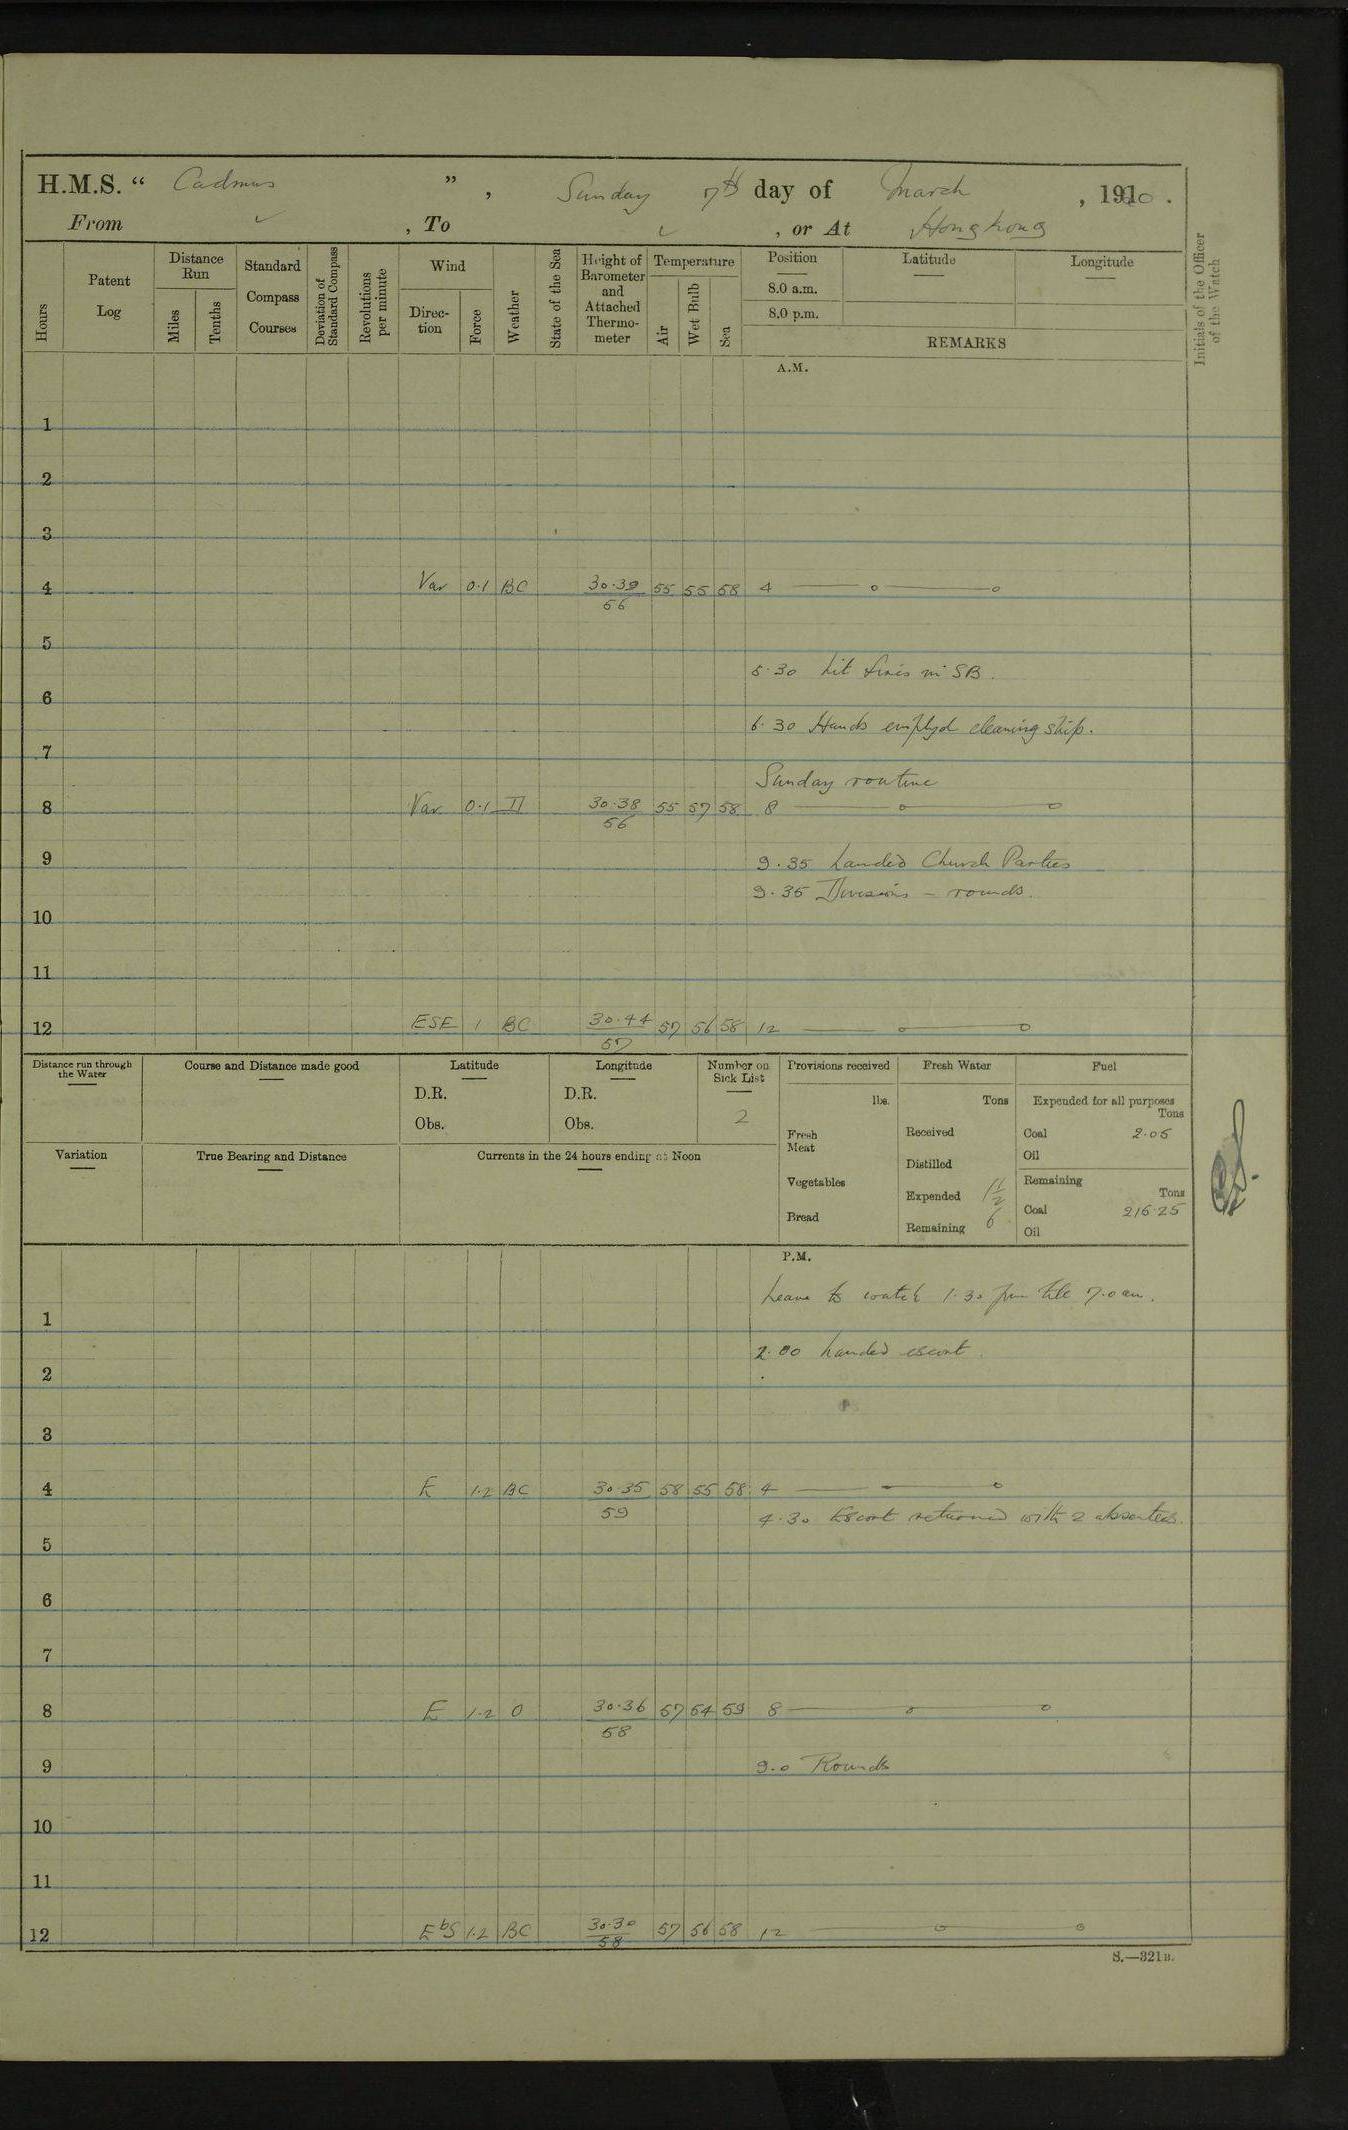 H.M.S. “ Cadmus ” , Sunday 7th day of March , 1920 .
From ✓ , To ✓ , or At Hong Kong
Hours
Patent Log
Distance Run
Miles
Tenths
Standard Compass Courses
Deviation of Standard Compass
Revolutions per minute
Wind
Direction
Force
Weather
State of the Sea
Height of Barometer and Attached Thermometer
Temperature
Air
Wet Bulb
Sea
Position
8.0 a.m.
8.0 p.m.
Latitude
Longitude
REMARKS
Initials of the Officer of the Watch
A.M.
1
2
3
4 Var 0.1 BC 30.39 55 55 58 4
56
5
5.30 Lit fires in SB.
6
6.30 Hands employd cleaning ship.
7
Sunday routine
8 Var 0.1 II 30.38 55 57 58 8
56
9 9.35 Landed Church Parties
9.35 Divisions – rounds.
10
11
12 ESE 1 BC 30.44 57 56 58 12
57
Distance run through the Water
Course and Distance made good
Latitude
D.R.
Obs.
Longitude
D.R.
Obs.
Number on Sick List
2
Provisions received
lbs.
Fresh Meat
Vegetables
Bread
Fresh Water
Tons
Received
Distilled
Expended 1½
Remaining 6
Fuel
Expended for all purposes
Tons
Coal 2.05
Oil
Remaining
Tons
Coal 216.25
Oil
Variation
True Bearing and Distance
Currents in the 24 hours ending at Noon
P.M.
Leave to watch 1.30 pm till 7.0 am.
1
2.00 Landed escort.
2
3
4 E 1.2 BC 30.35 58 55 58 4
59
4.30 Escort returned with 2 absentees.
5
6
7
8 E 1.2 O 30.36 57 54 59 8
58
9 9.0 Rounds
10
11
12 EbS 1.2 BC 30.30 57 56 58 12
58
S.—321B.